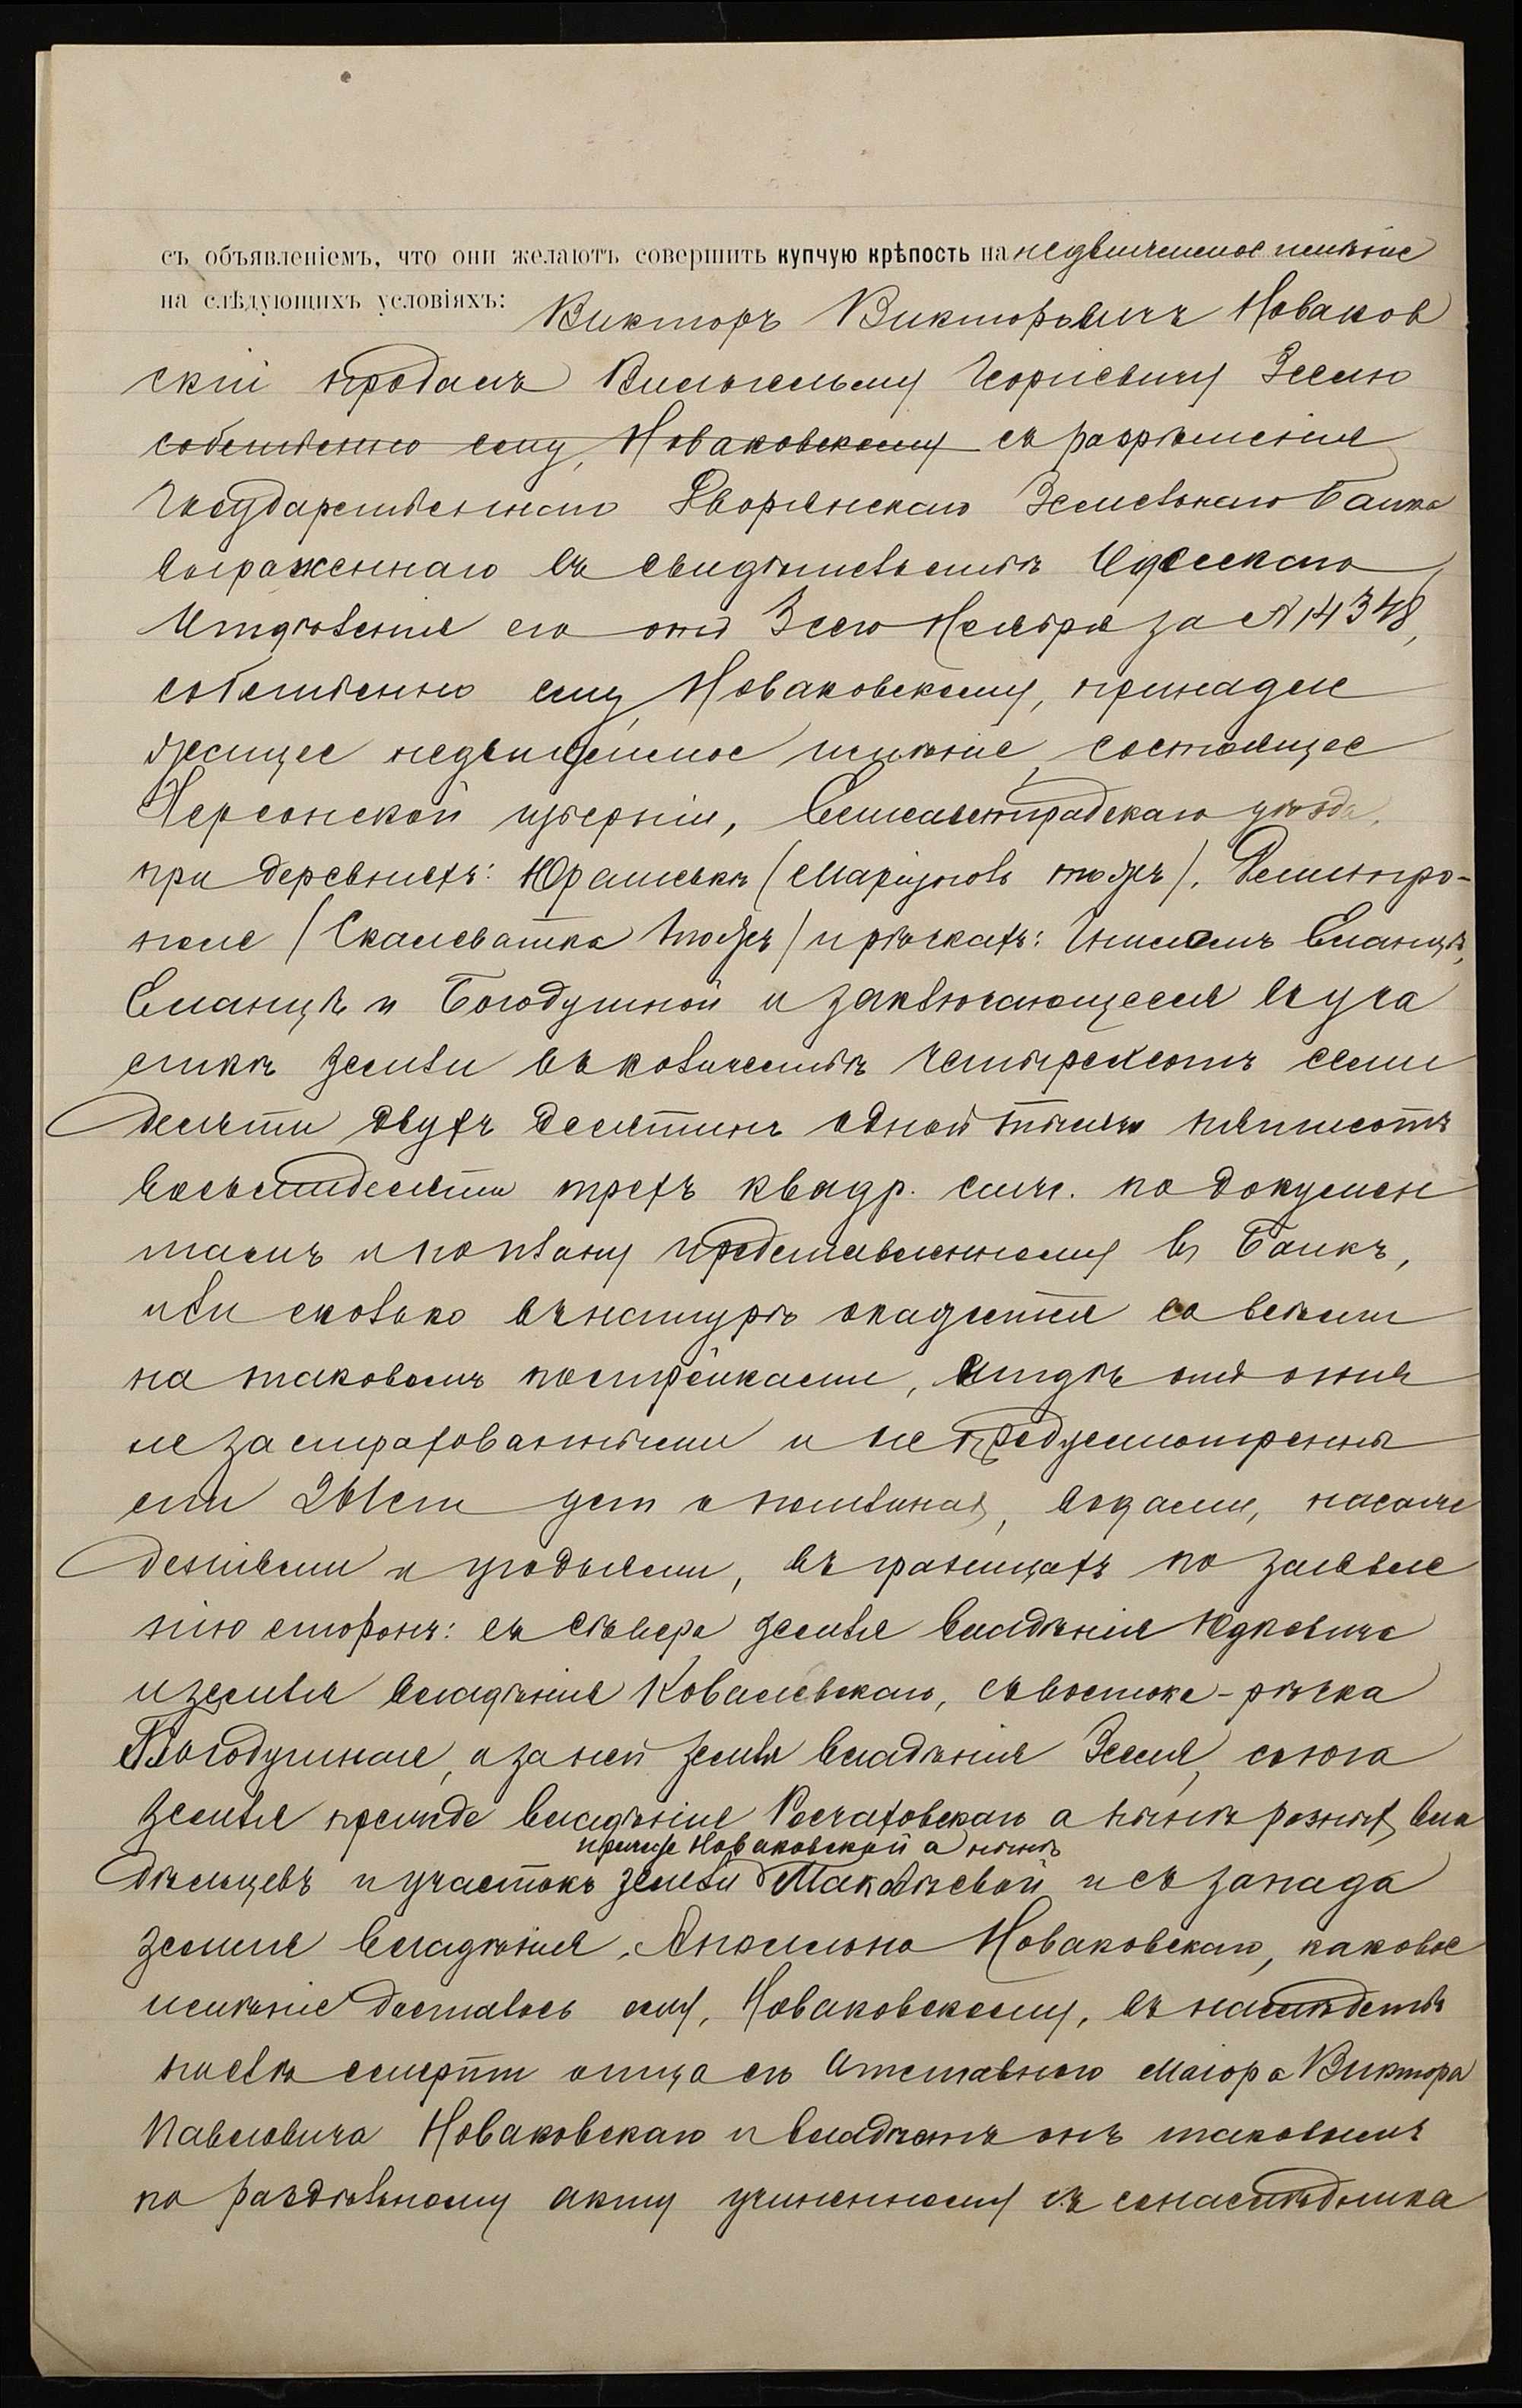 съ объявленіемъ, что они желаютъ совершить купчую крѣпость на недвижимое имѣніе
на слѣдующихъ условіяхъ: Викторъ Викторовичъ Новаков
скій продалъ Вильгельму Георгіевичу Зелю
собственно ему, Новаковскому съ разрѣшенія
Государственнаго Дворянскаго Земельнаго Банка
выраженнаго въ свидѣтельствѣ Одесскаго
Отдѣленія его отъ 3сего Ноября за № 14348,
собственно ему, Новаковскому, принадле
жащее недвижимое имѣніе, состоящее
Херсонской губерніи, Елисаветградскаго уѣзда,
при деревняхъ: Юрашевкѣ (Маріуполь тожъ),
(Скалеватка тожъ) и рѣчкахъ: Гниломъ Еланцѣ,
Еланцѣ и Богодушной и заключающееся въ уча
сткѣ земли въ количествѣ четырехсотъ семи
десяти двухъ десятинъ одной тысячи пятисотъ
восьмидесяти трехъ квадр. саж. по докумен
тамъ и по плану представленному въ Банкъ,
или сколько въ натурѣ окажется со всѣми
на таковомъ постройками, отдѣ отъ огня
не застрахованными и не предусмотренны
ми 261ст уст о пошлинах, водами, насаж
деніями и угодьями, въ границахъ по заявле
нію сторонъ: съ сѣвера земля владѣнія Юдкевича
и земля владѣнія Ковалевскаго, съ востока - рѣчка
Богодушная, а за ней земля владѣнія Зеля, съ юга
земля прежде владѣнія Росчаховскаго а нынѣ разныхъ вла
прежде Новаковской а нынѣ
дѣльцевъ и участокъ земли Маковѣевой и съ запада
земля владѣнія Новаковскаго, каковое
имѣніе досталось ему, Новаковскому, въ наслѣдство
послѣ смерти отца его Отставного Маіора Виктора
Павловича Новаковскаго и владѣетъ онъ таковымъ
по раздѣльному акту учиненному съ сонаслѣдника